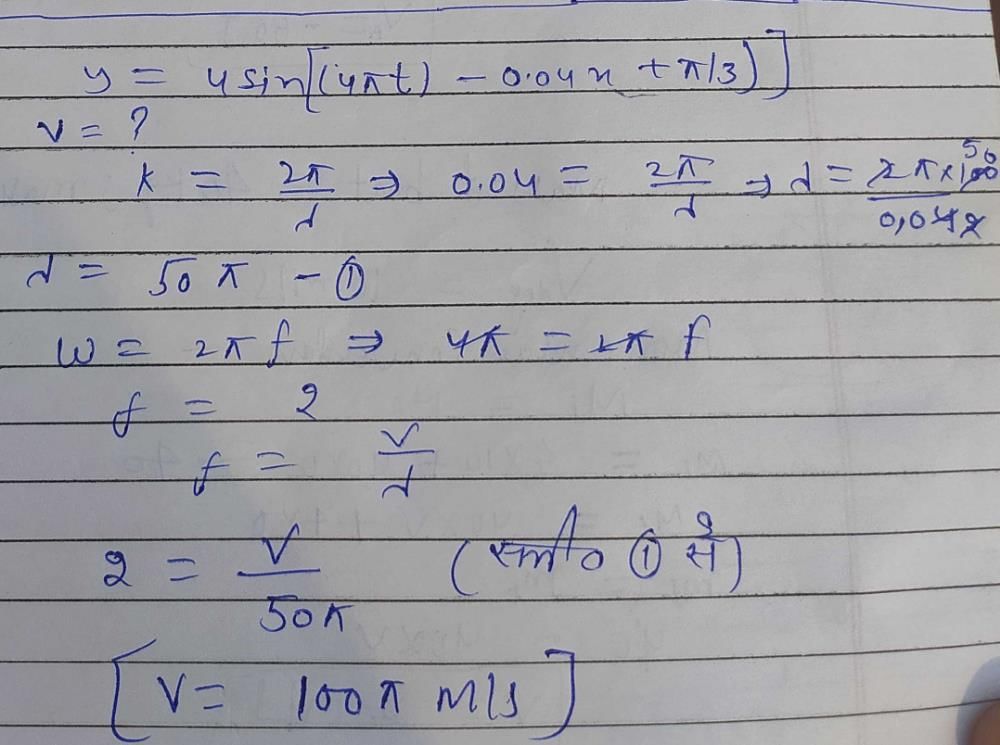 y = 4 sin[(4πt) - 0.04x + π/3)]
v = ?
K = 2π/λ ⇒ 0.04 = 2π/λ ⇒ λ = 2π×100 50/0,04 2
λ = 50 π - ①
ω = 2π f ⇒ 4π = 2π f
f = 2
f = v/λ
2 = v/50π (समी० ① से)
[V = 100π m/s]